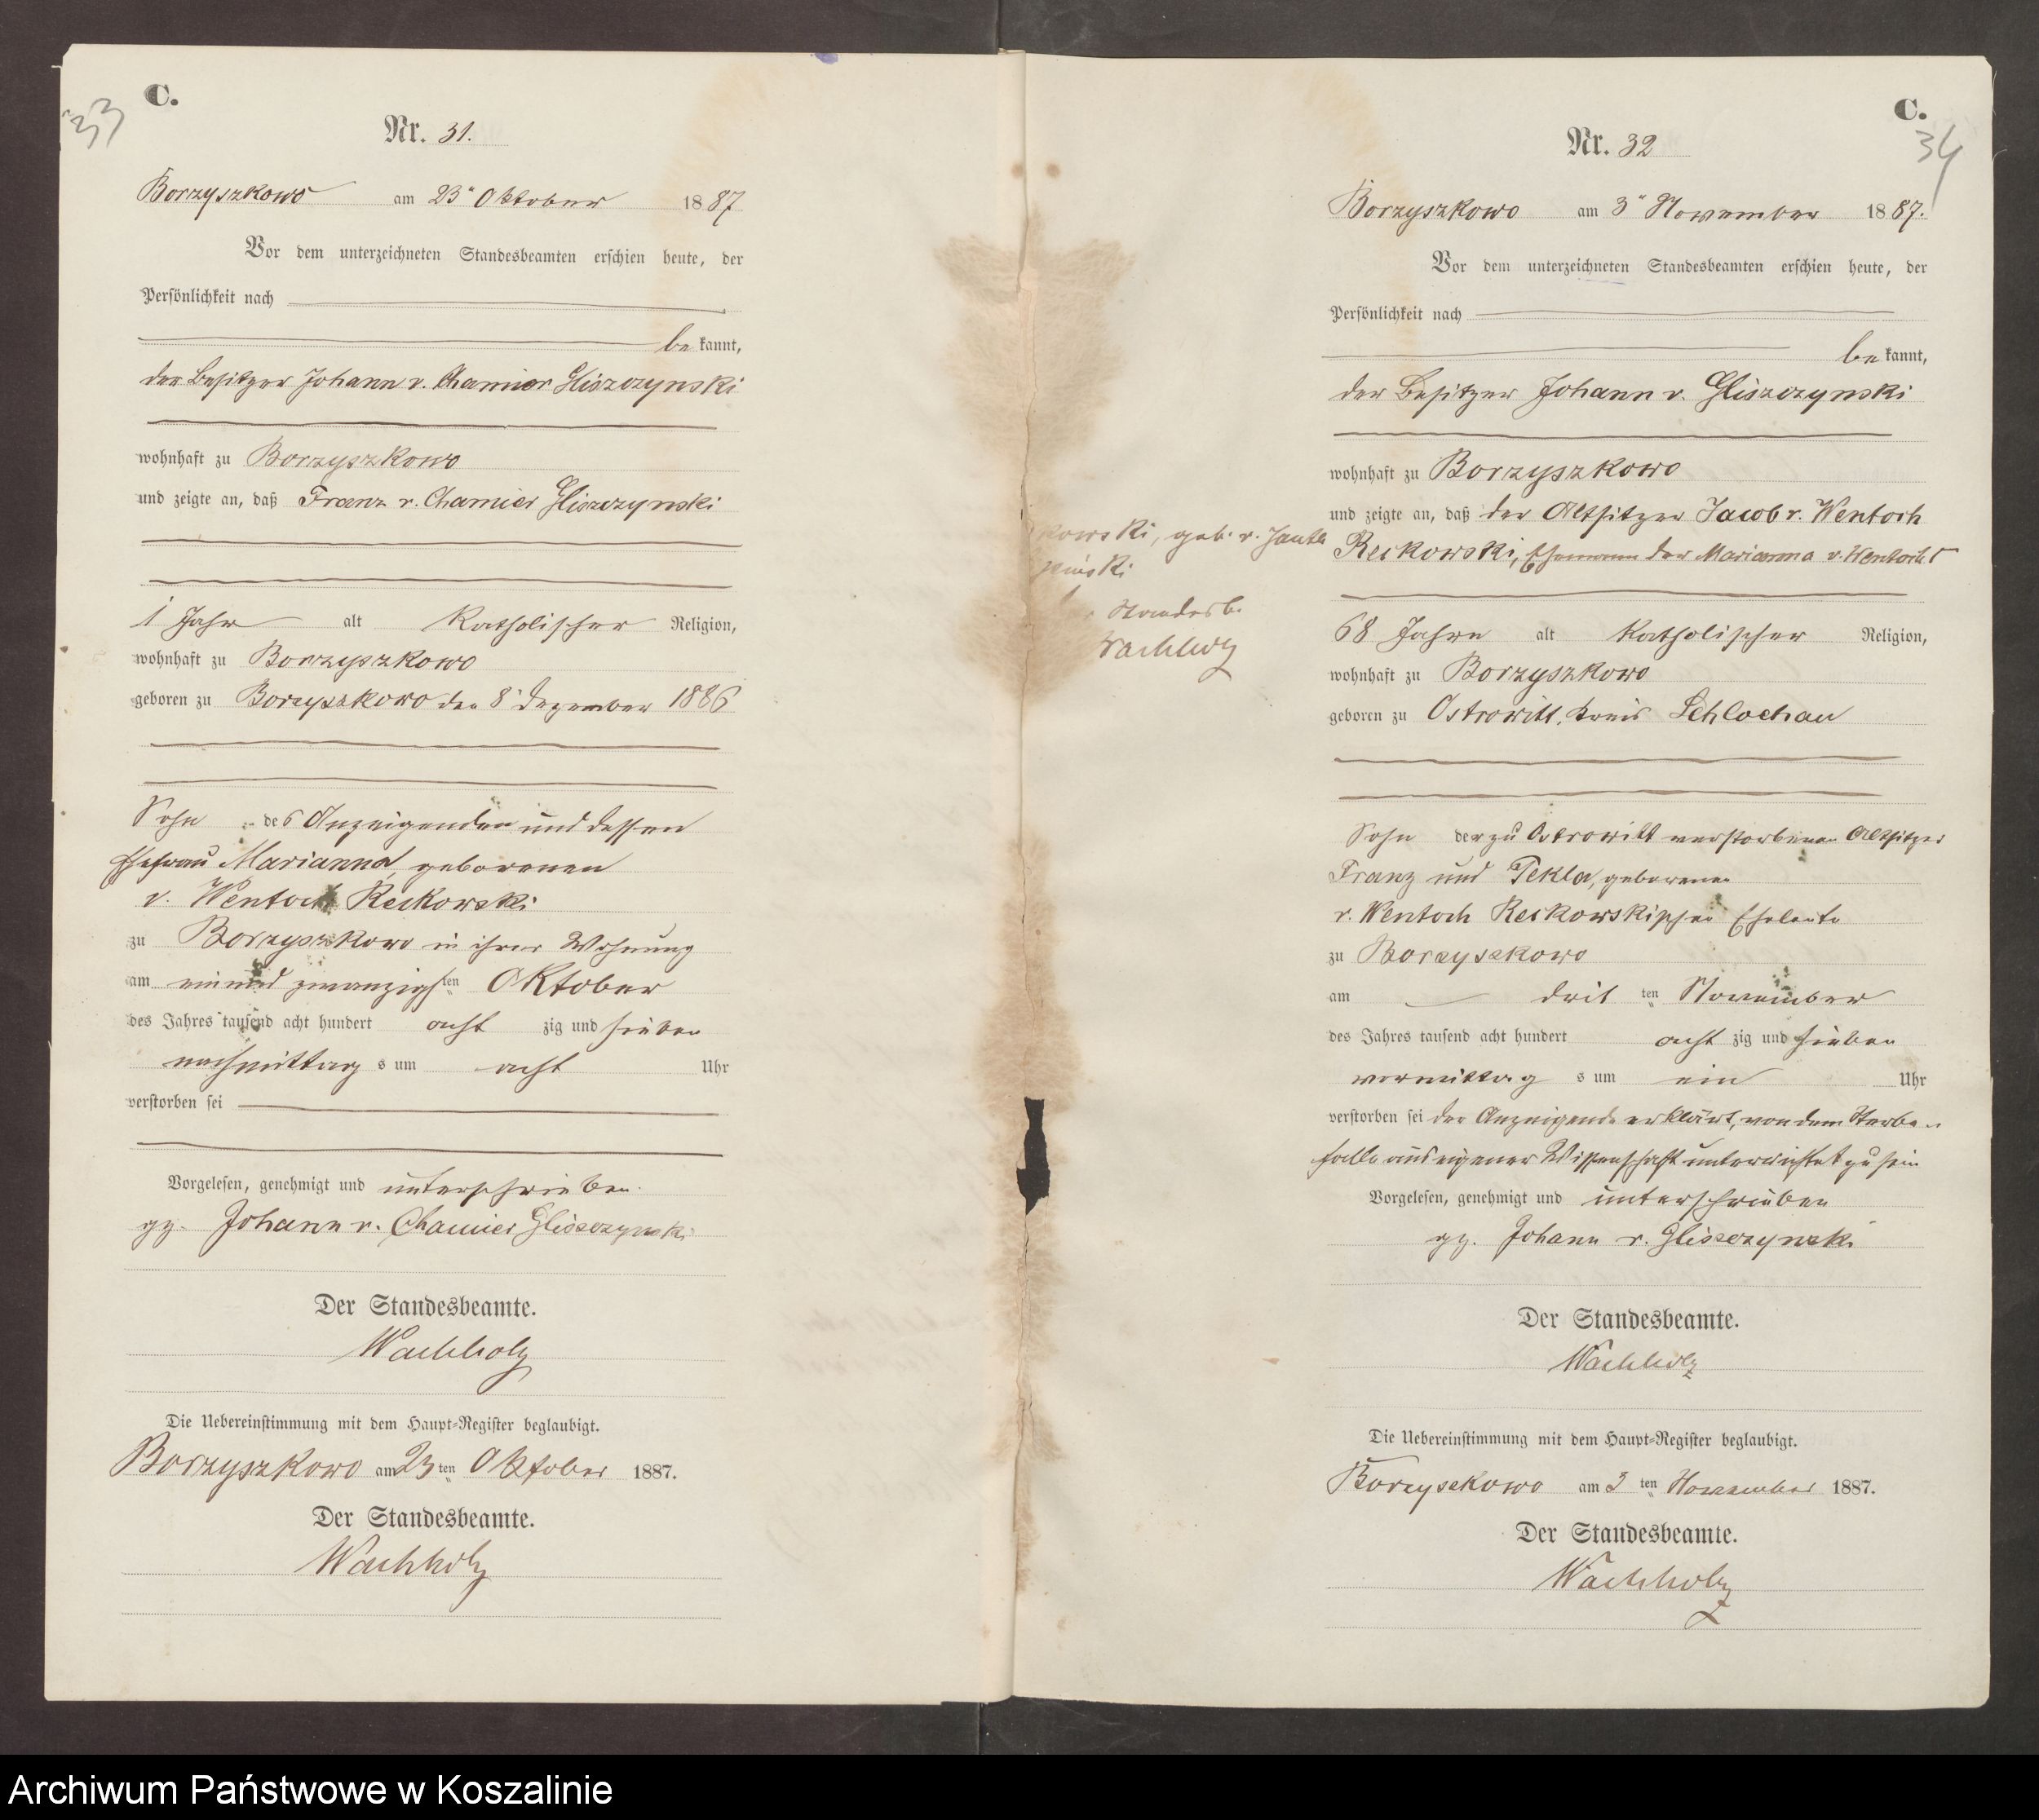 33
C.
Nr. 31.
Borzyszkowo am 23ⁿ Oktober 1887
Vor dem unterzeichneten Standesbeamten erschien heute, der
Persönlichkeit nach
be kannt,
der Besitzer Johann v. Chamier Gliszczynski
wohnhaft zu Borzyszkowo
und zeigte an, daß Franz v. Chamier Gliszczynski
1 Jahr alt Katholischer Religion,
wohnhaft zu Borzyszkowo
geboren zu Borzyszkowo den 8ⁿ Dezember 1886
Sohn des Anzeigenden und dessen
Ehefrau Marianna, geborenen
v. Wentoch Reckowski
zu Borzyszkowo in ihrer Wohnung
am einund zwanzigsten Oktober
des Jahres tausend acht hundert acht zig und sieben
nachmittag s um acht Uhr
verstorben sei
Vorgelesen, genehmigt und unterschrieben.
gz. Johann v. Chamier Gliszczynski
Der Standesbeamte.
Wachholz
Die Uebereinstimmung mit dem Haupt-Register beglaubigt.
Borzyszkowo am 23 ten Oktober 1887.
Der Standesbeamte.
Wachholz
C.
34
Nr. 32
Borzyszkowo am 3ⁿ November 1887.
Vor dem unterzeichneten Standesbeamten erschien heute, der
Persönlichkeit nach
be kannt,
der Besitzer Johann v. Gliszczynski
wohnhaft zu Borzyszkowo
und zeigte an, daß der Altsitzer Jacob v. Wentoch
Reckowski, Ehemann der Marianna v. Wentoch
kowski, geb. v. Janta
Standesb.
Wachholz
68 Jahre alt Katholischer Religion,
wohnhaft zu Borzyszkowo
geboren zu Ostrowitt, Kreis Schlochau
Sohn der zu Ostrowitt verstorbenen Altsitzer
Franz und Tekla, geborenen
v. Wentoch Reckowskischen Eheleute
zu Borzyszkowo
am drit ten November
des Jahres tausend acht hundert acht zig und sieben
vormittag s um ein Uhr
verstorben sei der Anzeigende erklärt, von dem Sterbe
falle aus eigener Wissenschaft unterrichtet zu sein
Vorgelesen, genehmigt und unterschrieben
gz. Johann v. Gliszczynski
Der Standesbeamte.
Wachholz
Die Uebereinstimmung mit dem Haupt-Register beglaubigt.
Borzyszkowo am 3 ten November 1887.
Der Standesbeamte.
Wachholz
Archiwum Państwowe w Koszalinie